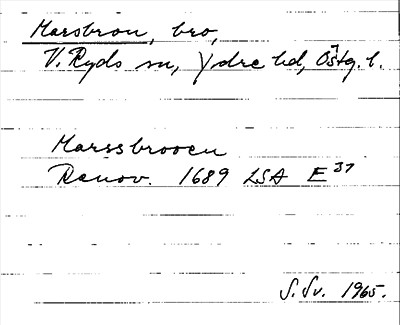 Marsbron, bro,
V. Ryds sn, Ydre hd, Östg. l.
Marssbrooen
Renov. 1689 LSA E 37
S. Sv. 1965.